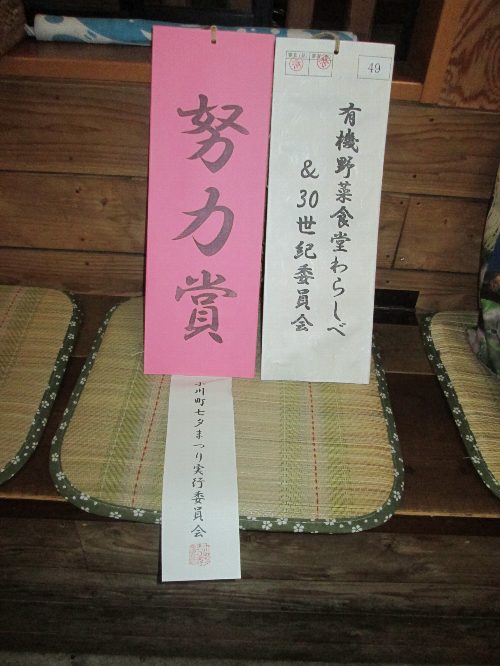 努力賞
49
有機野菜食堂わらしべ
&30世紀委員会
小川町七夕まつり実行委員会